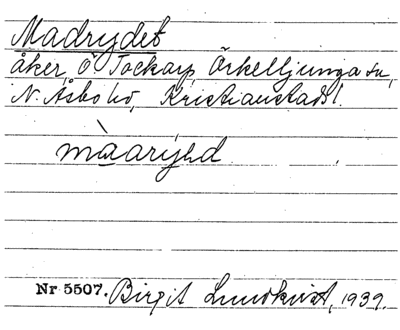 Madrydet
åker, Ö. Tockarp, Örkelljunga sn,
N. Åsbo hd, Kristianstads l.
màaryd
Nr 5507. Birgit Lundkvist, 1939.